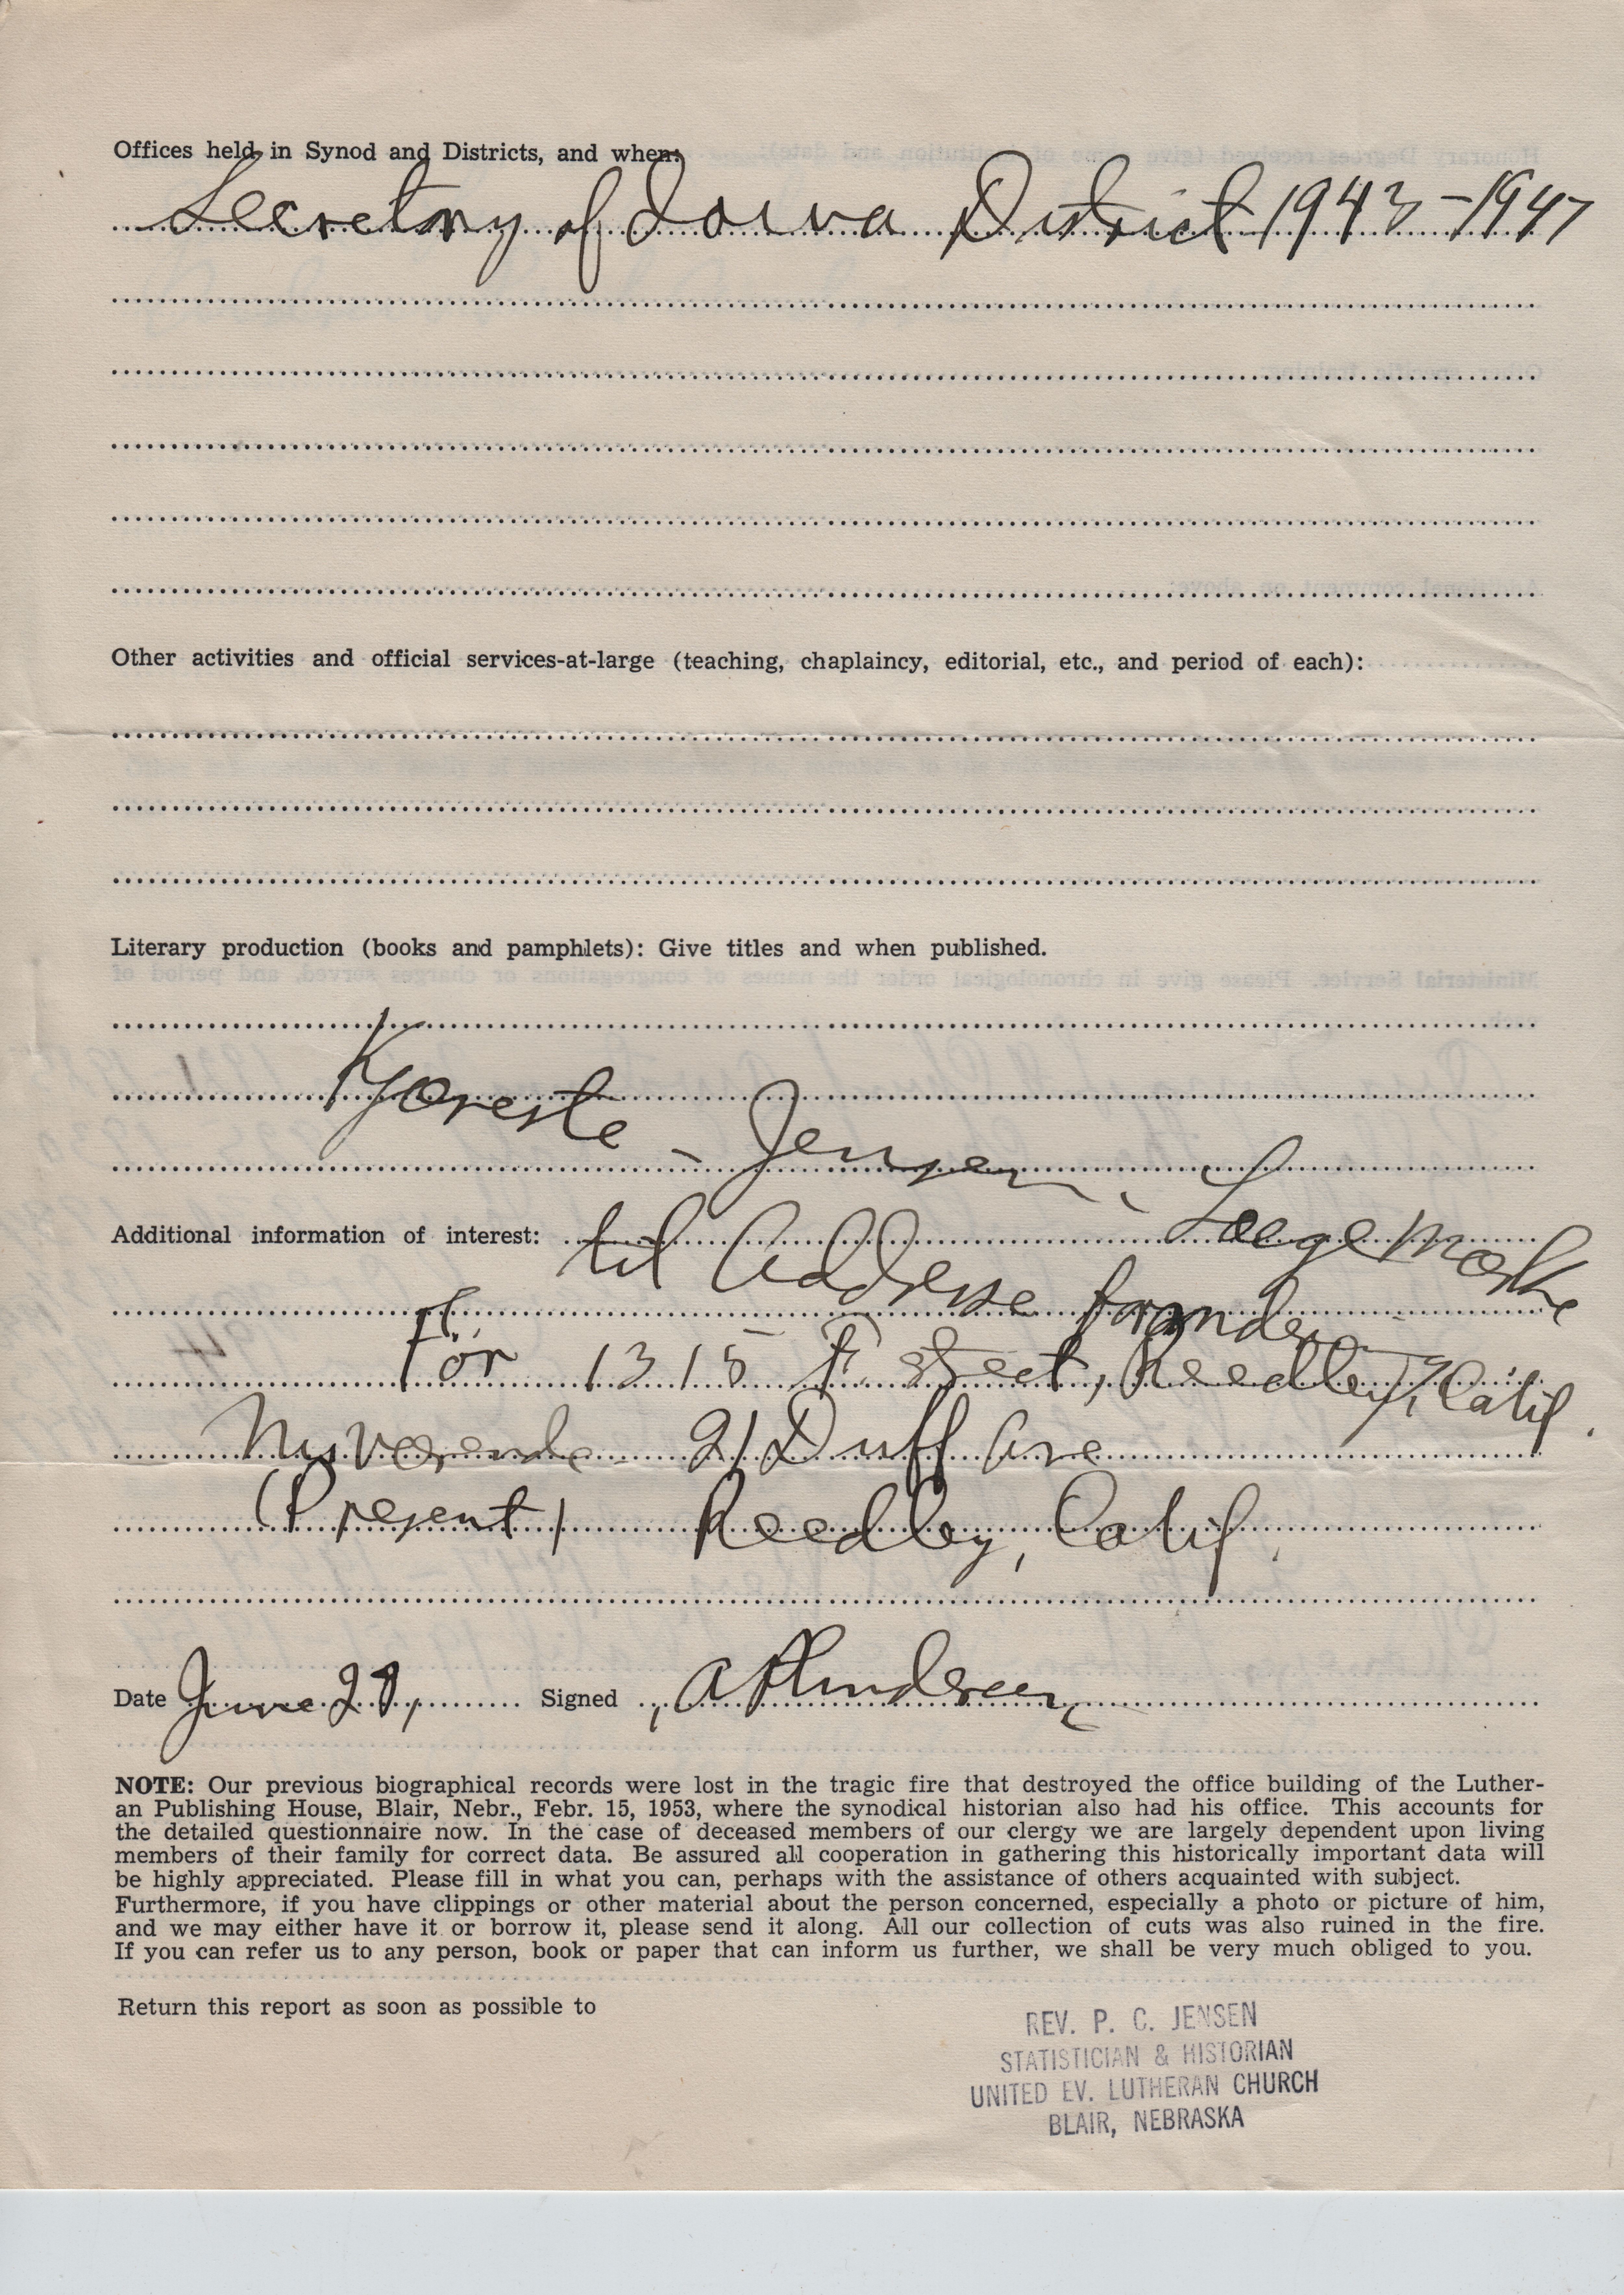 Offices held in Synod and Districts, and when:
Secretary of Iowa District 1943-1947
Other activities and official services-at-large (teaching, chaplaincy, editorial, etc., and period of each):
Literary production (books and pamphlets): Give titles and when published.
Kjæreste - Jensen,
Additional information of interest:
Læg Mærke
til Addresse forandring
Før 1315 F. Street, Reedley, Calif.
Nuværende 21 Duff Ave
(Present) Reedley, Calif.
Date June 29, Signed A P Andersen
NOTE: Our previous biographical records were lost in the tragic fire that destroyed the office building of the Luther-
an Publishing House, Blair, Nebr., Febr. 15, 1953, where the synodical historian also had his office. This accounts for
the detailed questionnaire now. In the case of deceased members of our clergy we are largely dependent upon living
members of their family for correct data. Be assured all cooperation in gathering this historically important data will
be highly appreciated. Please fill in what you can, perhaps with the assistance of others acquainted with subject.
Furthermore, if you have clippings or other material about the person concerned, especially a photo or picture of him,
and we may either have it or borrow it, please send it along. All our collection of cuts was also ruined in the fire.
If you can refer us to any person, book or paper that can inform us further, we shall be very much obliged to you.
Return this report as soon as possible to
REV. P. C. JENSEN
STATISTICIAN & HISTORIAN
UNITED EV. LUTHERAN CHURCH
BLAIR, NEBRASKA